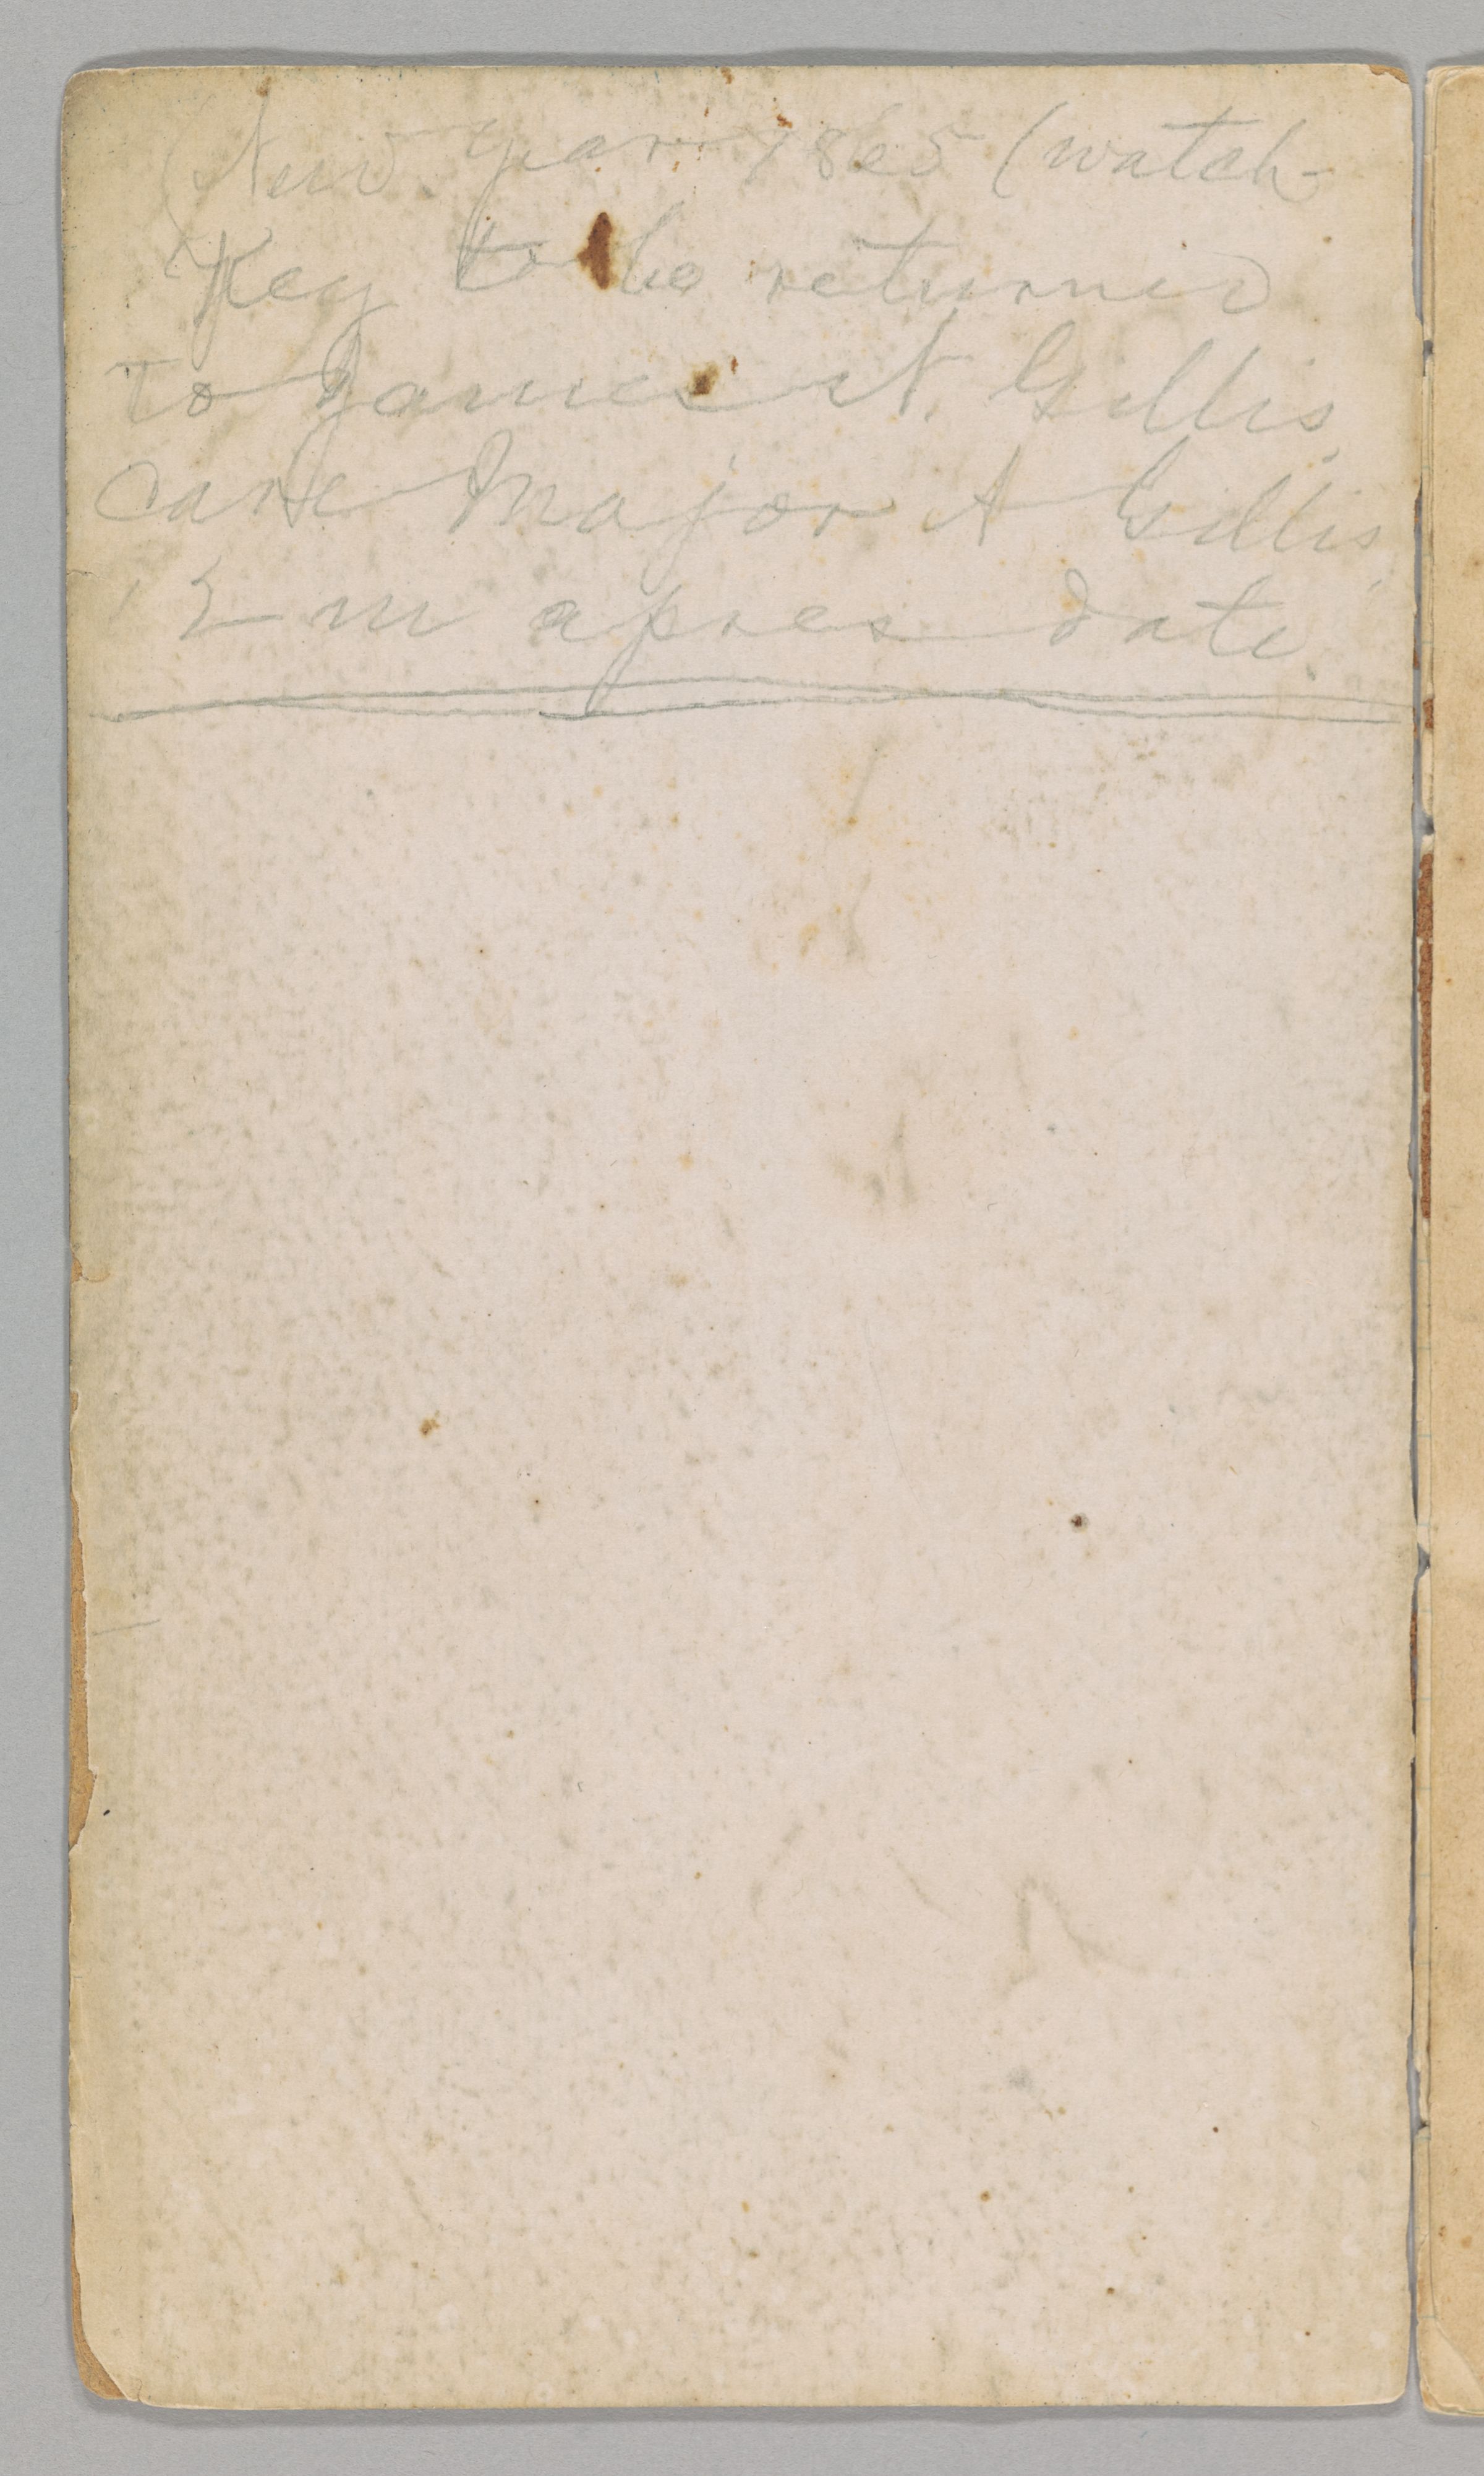 (New Year 1865 (watch-
Key to be returned
to James N. Gillis,
care Major A Gillis,
12 m apres date.